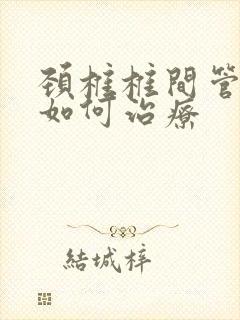 頚椎椎間管
如何治療
結城梓